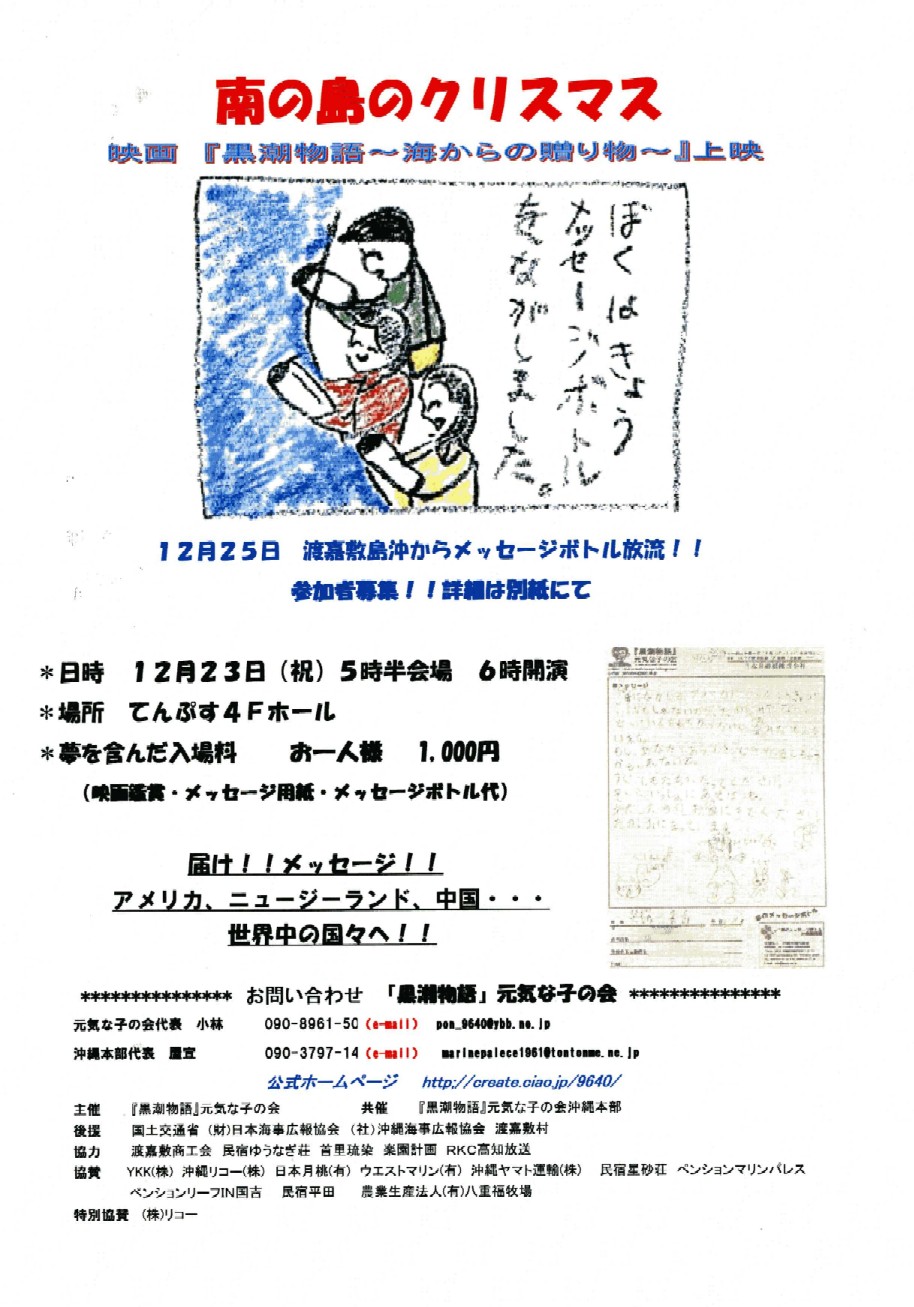 南の島のクリスマス
映画 『黒潮物語～海からの贈り物～』上映
ぼくはきょう
メッセージボトル
をながしました。
12月25日 渡嘉敷島沖からメッセージボトル放流！！
参加者募集！！詳細は別紙にて
＊日時 12月23日（祝）5時半会場 6時開演
＊場所 てんぷす4Fホール
＊夢を含んだ入場料 お一人様 1,000円
（映画鑑賞・メッセージ用紙・メッセージボトル代）
『黒潮物語』
元気な子の会
メッセージ
届け！！メッセージ！！
アメリカ、ニュージーランド、中国・・・
世界中の国々へ！！
*************** お問い合わせ 「黒潮物語」元気な子の会 ***************
元気な子の会代表 小林 090-8961-50 (e-mail) pon_9640@ybb.ne.jp
沖縄本部代表 屋宜 090-3797-14 (e-mail) marinepalece1961@tontonme.ne.jp
公式ホームページ http://create.ciao.jp/9640/
主催 『黒潮物語』元気な子の会 共催 『黒潮物語』元気な子の会沖縄本部
後援 国土交通省 (財)日本海事広報協会 (社)沖縄海事広報協会 渡嘉敷村
協力 渡嘉敷商工会 民宿ゆうなぎ荘 首里琉染 楽園計画 RKC高知放送
協賛 YKK(株) 沖縄リコー(株) 日本月桃(有) ウエストマリン(有) 沖縄ヤマト運輸(株) 民宿星砂荘 ペンションマリンパレス
ペンションリーフIN国吉 民宿平田 農業生産法人(有)八重福牧場
特別協賛 (株)リコー